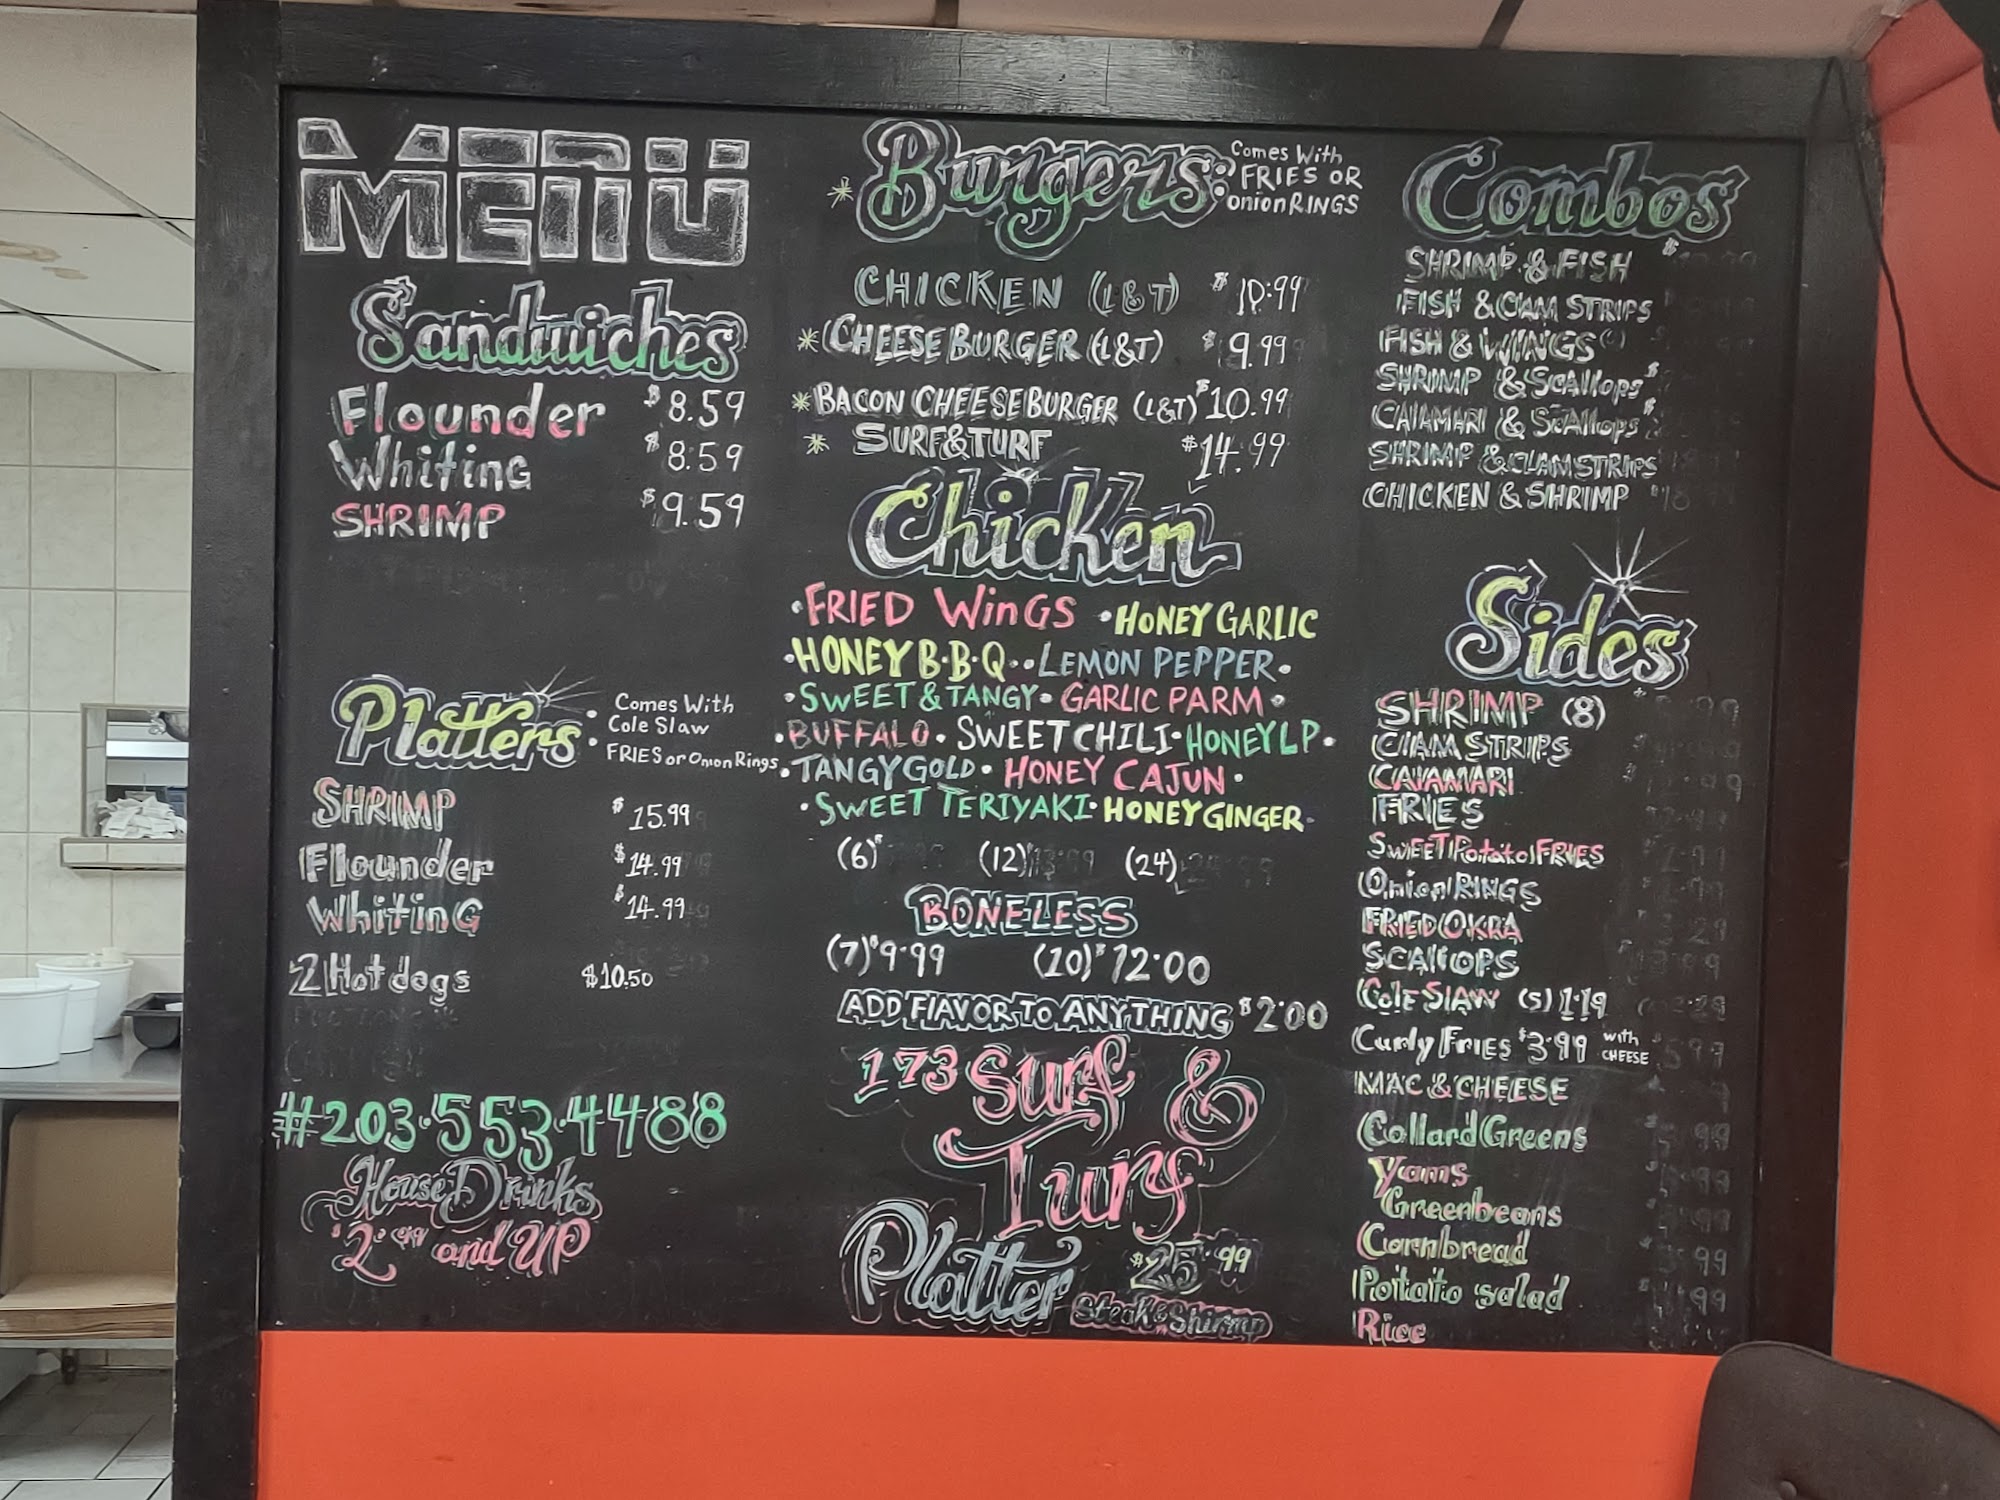 MENU
Sandwiches
Flounder $8.59
Whiting $8.59
SHRIMP $9.59
Platters: Comes With
Cole Slaw
FRIES or Onion Rings
SHRIMP $15.99
Flounder $14.99
Whiting $14.99
2 Hot dogs $10.50
#203.553.4488
House Drinks
$2.99 and UP
* Burgers: Comes With
FRIES OR
onion RINGS
CHICKEN (L&T) $10.99
* CHEESE BURGER (L&T) $9.99
* BACON CHEESEBURGER (L&T) $10.99
* SURF&TURF $14.99
Chicken
• FRIED WinGS • HONEY GARLIC
• HONEY B•B•Q • • LEMON PEPPER •
• SWEET & TANGY • GARLIC PARM •
• BUFFALO • SWEET CHILI • HONEY LP •
• TANGY GOLD • HONEY CAJUN •
• SWEET TERIYAKI • HONEY GINGER
(6)$ (12)$ (24)
BONELESS
(7)$9.99 (10)$12.00
ADD FLAVOR TO ANYTHING $2.00
173 Surf &
Turf
Platter $25.99
Steak & Shrimp
Combos
SHRIMP & FISH $
FISH & CLAM STRIPS
FISH & WINGS
SHRIMP & SCAllOPS $
CALAMARI & SCAllOPS $
SHRIMP & CLAM STRIPS
CHICKEN & SHRIMP
Sides
SHRIMP (8)
CLAM STRIPS
CALAMARI
FRIES
SWEET Potato FRIES
Onion RINGS
FRIED OKRA
SCALLOPS
Cole SLAW (S) 1.19
Curly FRIES $3.99 with CHEESE
MAC & CHEESE
Collard Greens
Yams
Greenbeans
Cornbread
Potato salad
Rice